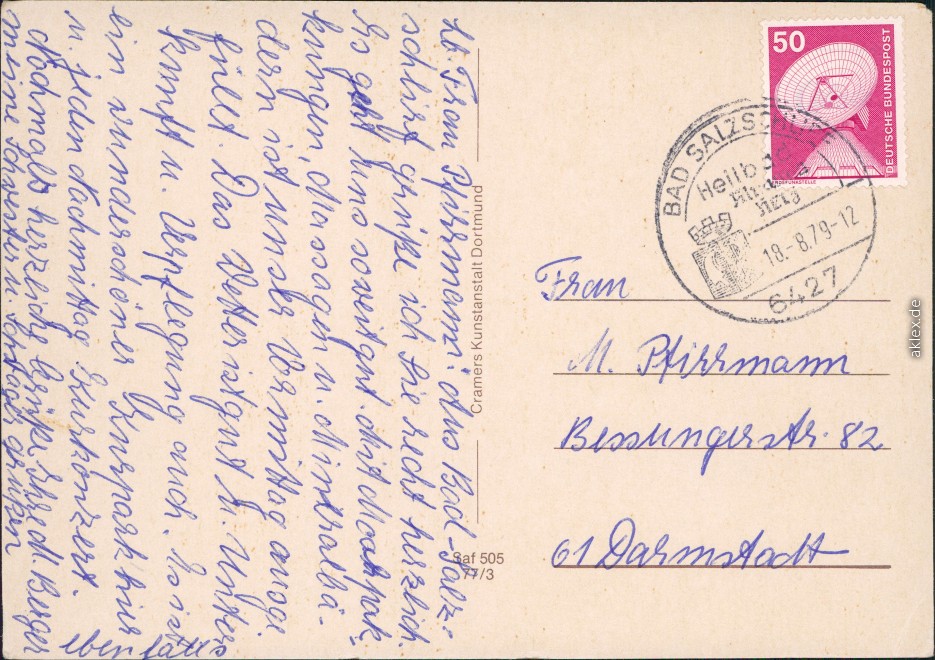 Lb. Frau Pfirrmann! Aus Bad-Salz-
schlirf grüße ich Sie recht herzlich.
Es geht uns soweit gut. Mit Moorpak-
kungen, Massagen u. Mineralbä-
dern ist unser Vormittag ausge
füllt. Das Wetter ist gut u. Unter
kunft u. Verpflegung auch. Es ist
ein wunderschöner Kurpark hier
u. jeden Nachmittag Kurkonzert.
Nochmals herzliche Grüße Ihre H. Berger
meine Schwester u. Schwager grüßen
ebenfalls
Cramers Kunstanstalt Dortmund
Saf 505
77/3
50
DEUTSCHE BUNDESPOST
ERDFUNKSTELLE
BAD SALZSCHLIRF
Heilbad
18.-8.79-12
6427
Frau
M. Pfirrmann
Bessungerstr. 82
61 Darmstadt
aklex.de